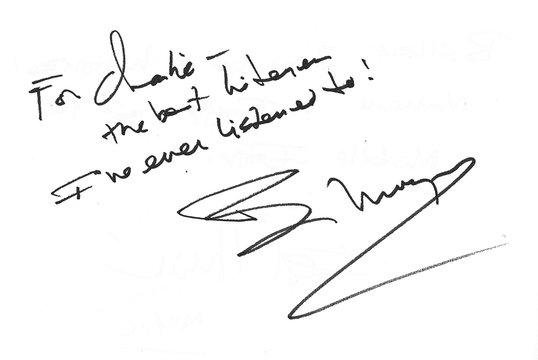 For Charlie -
the best listener
I've ever listened to!